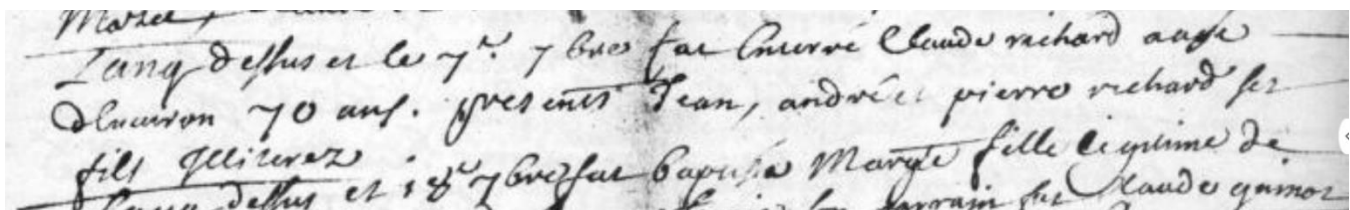 Lanq dessus et le 7e. 7bre fut Enterré Claude richard aagé
d'Environ 70 ans. presents Jean, andré et pierre richard ses
fils Illiterez
Lanq dessus et 18e 7bre fut baptisée Margte fille legitime de
parrain fut Claude